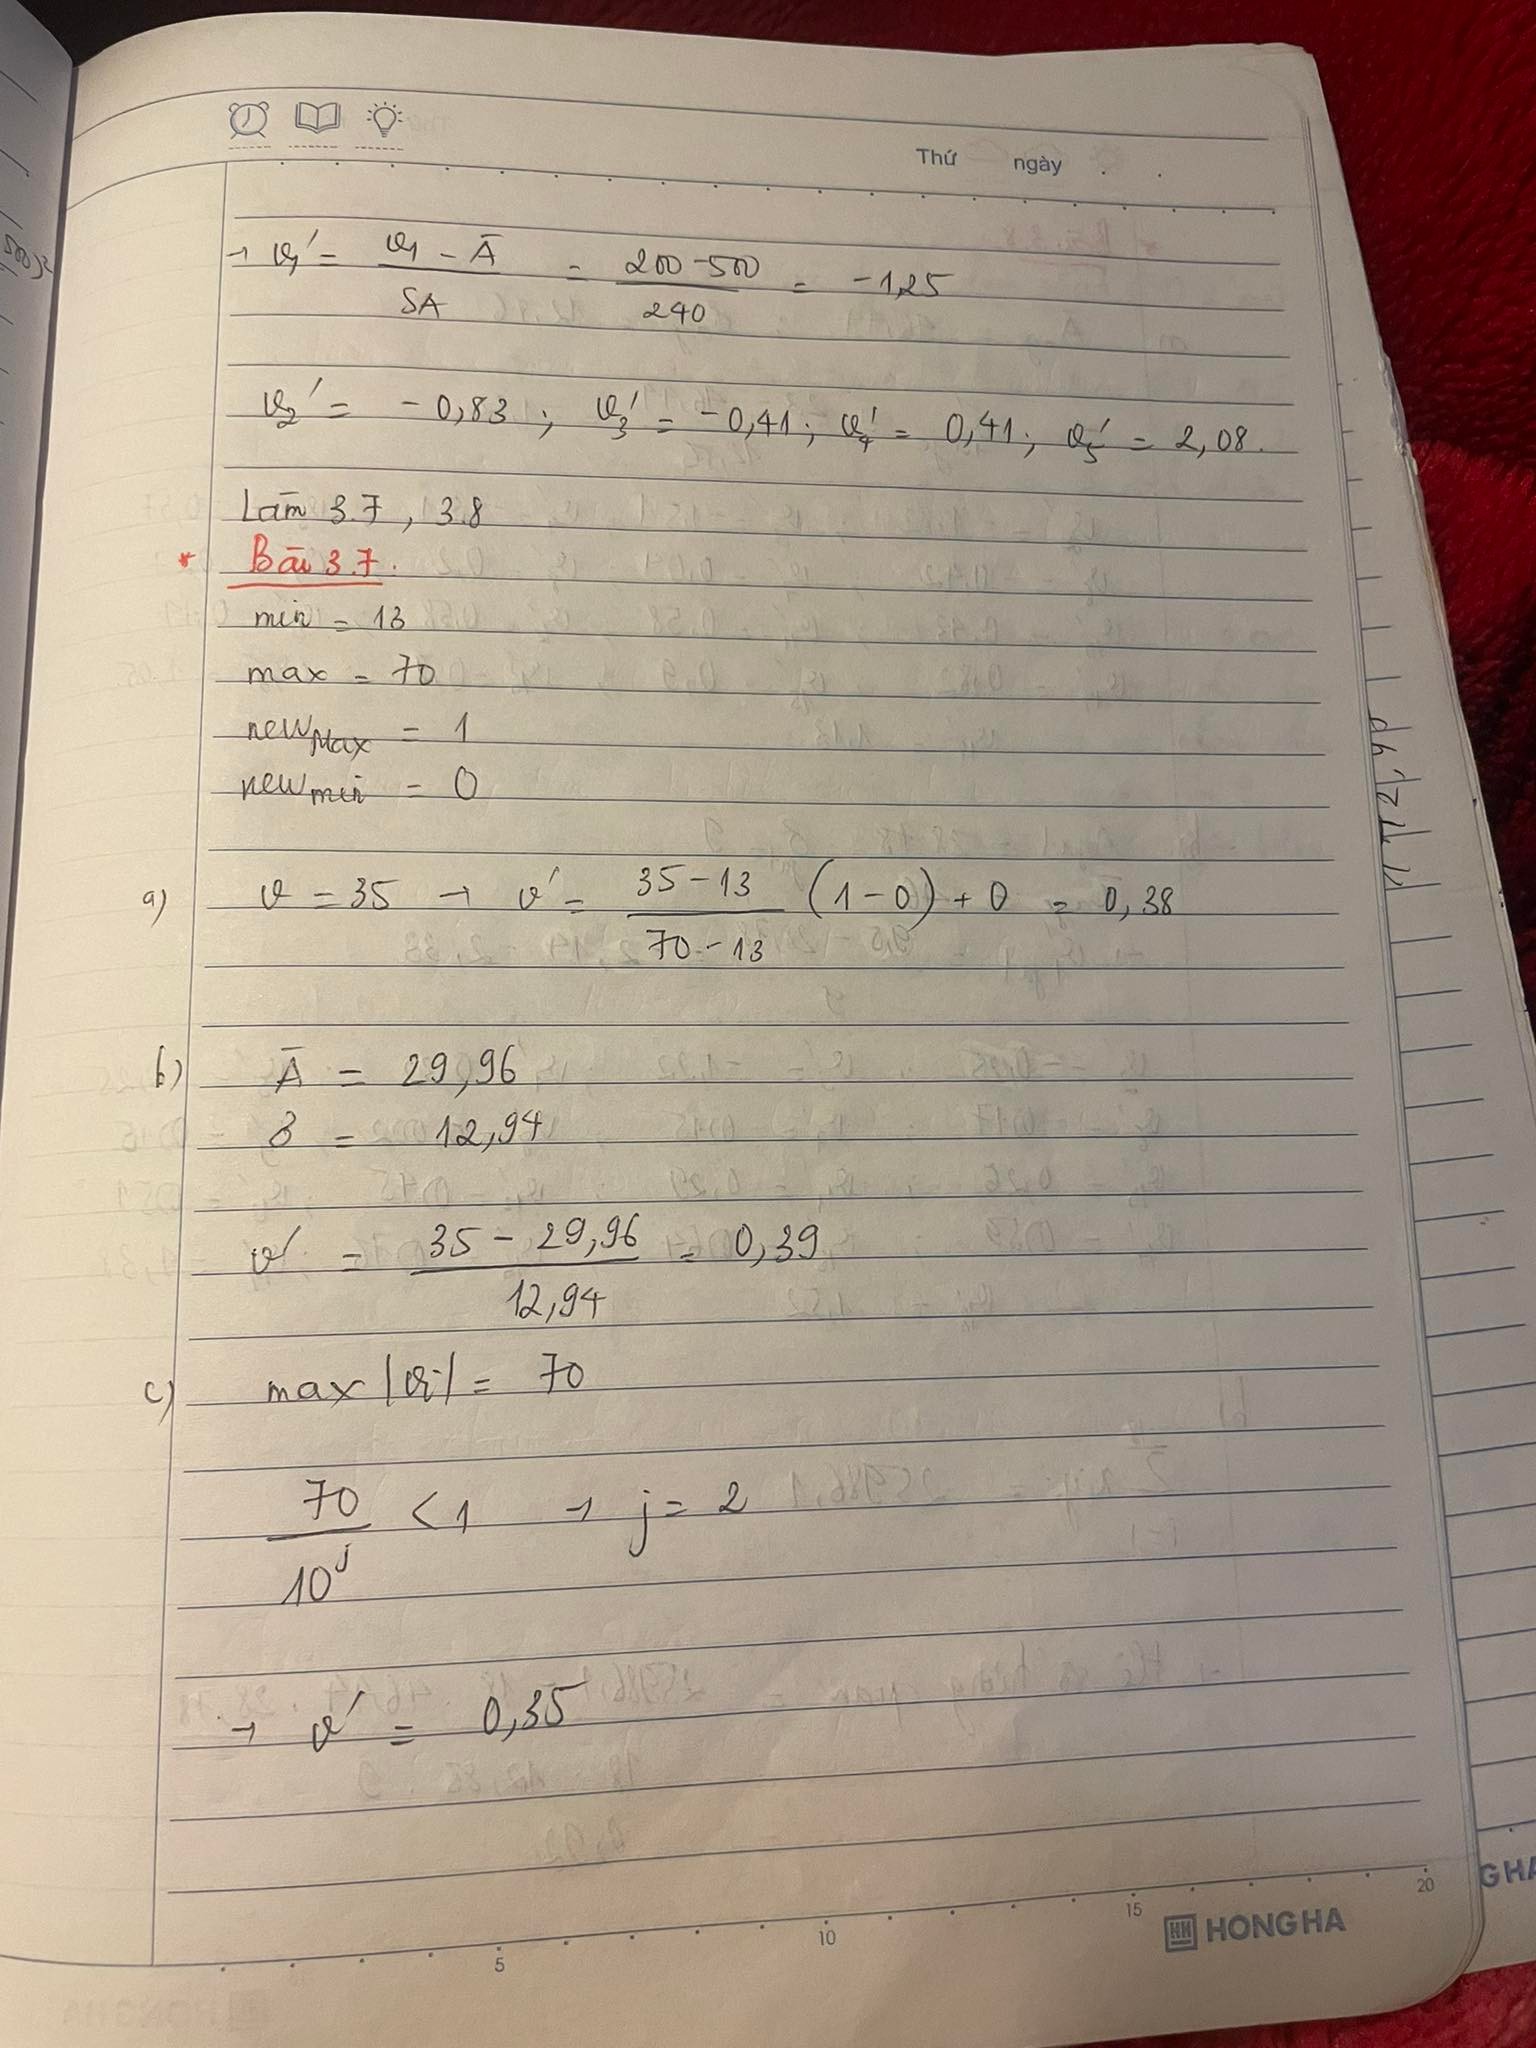 Thứ ngày
→ v₁' = (v₁ - Ā) / SA = (200 - 500) / 240 = -1,25
v₂' = -0,83 ; v₃' = -0,41 ; v₄' = 0,41 ; v₅' = 2,08.
Làm 3.7, 3.8
* Bài 3.7.
min = 13
max = 70
new_Max = 1
new_min = 0
a) v = 35 → v' = (35 - 13) / (70 - 13) (1 - 0) + 0 = 0,38
b) Ā = 29,96
δ = 12,94
v' = (35 - 29,96) / 12,94 = 0,39
c) max |vi| = 70
70 / 10^j < 1 → j = 2
→ v' = 0,35
5 10 15 20
HH HONG HA